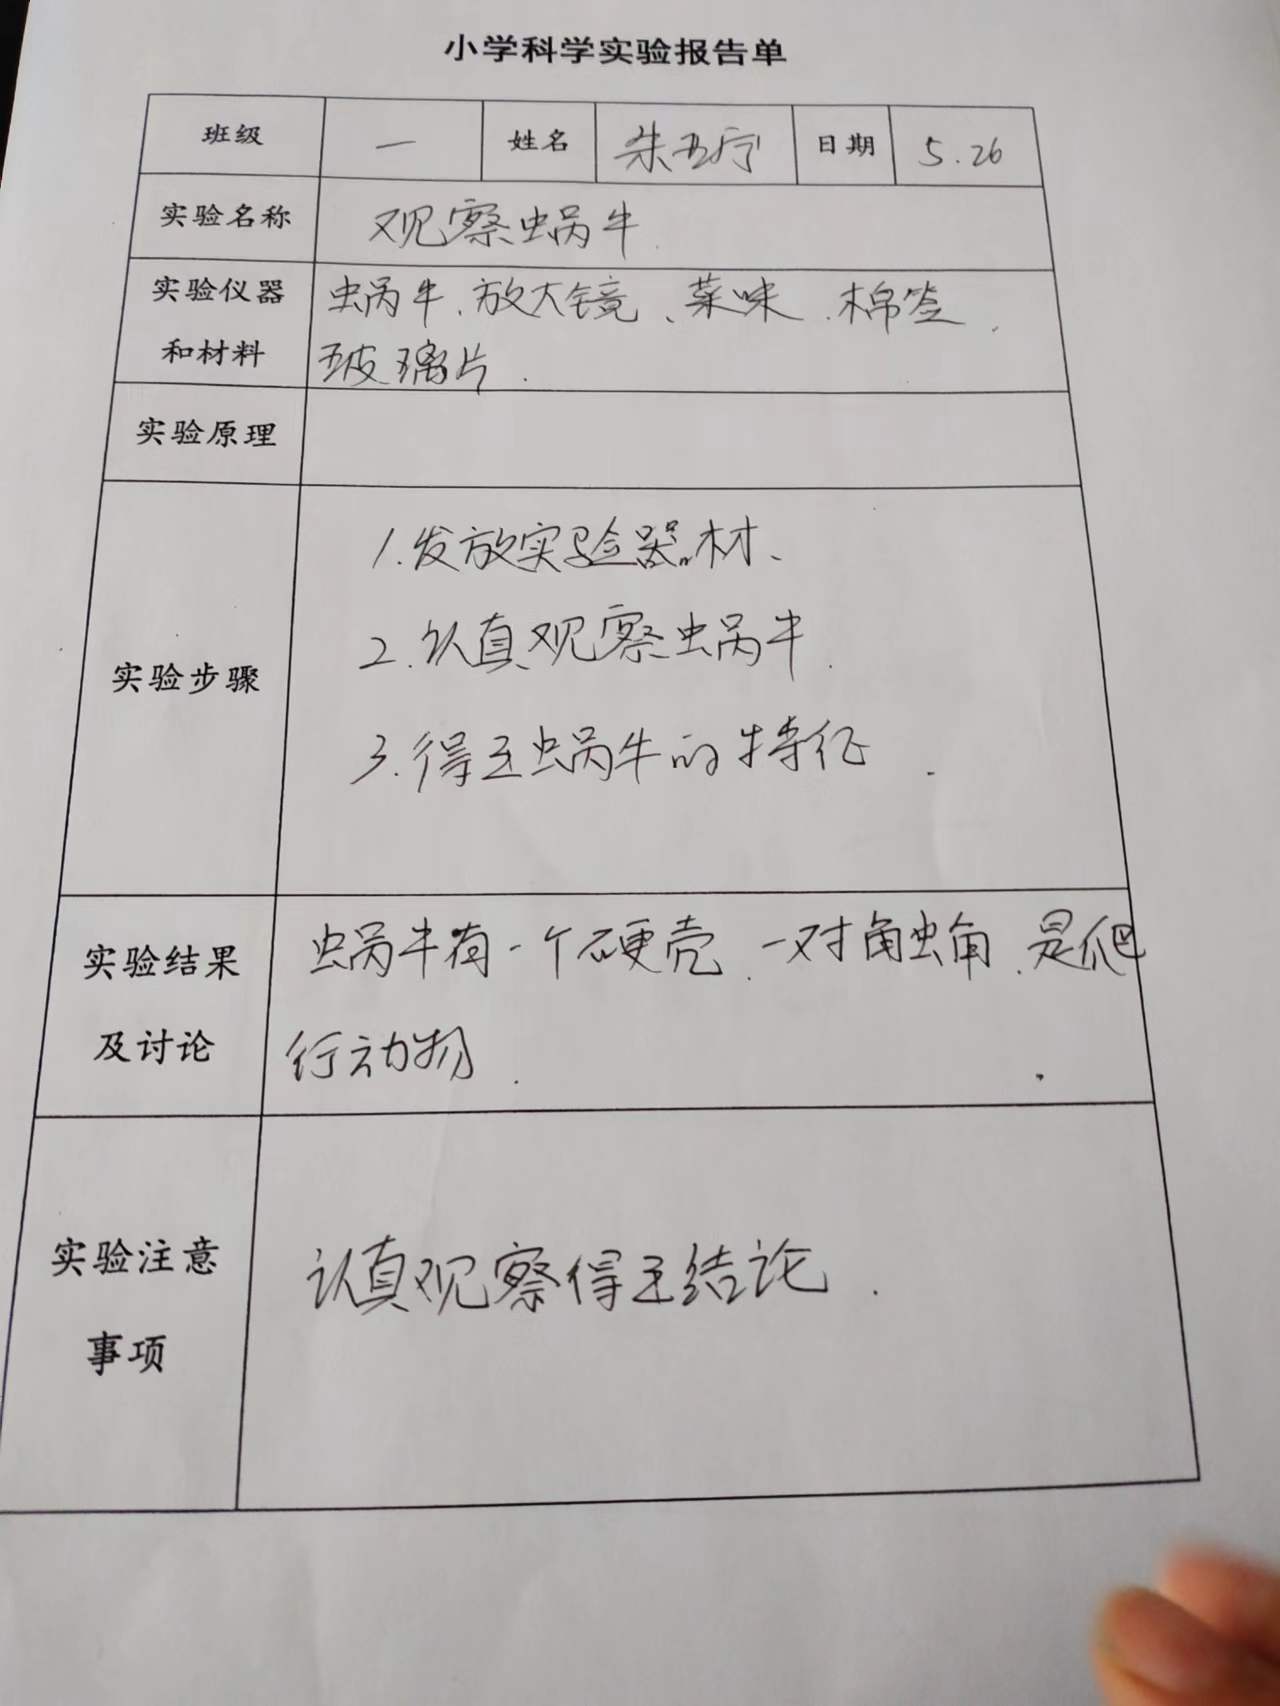 小学科学实验报告单
班级 一 姓名 朱 日期 5.26
实验名称 观察蜗牛
实验仪器 蜗牛、放大镜、菜味、棉签、
和材料 玻璃片.
实验原理
1.发放实验器材、
2.认真观察蜗牛.
实验步骤
3.得到蜗牛的特征.
实验结果 蜗牛有一个硬壳、一对触角、是爬
及讨论 行动物.
实验注意 认真观察得到结论.
事项